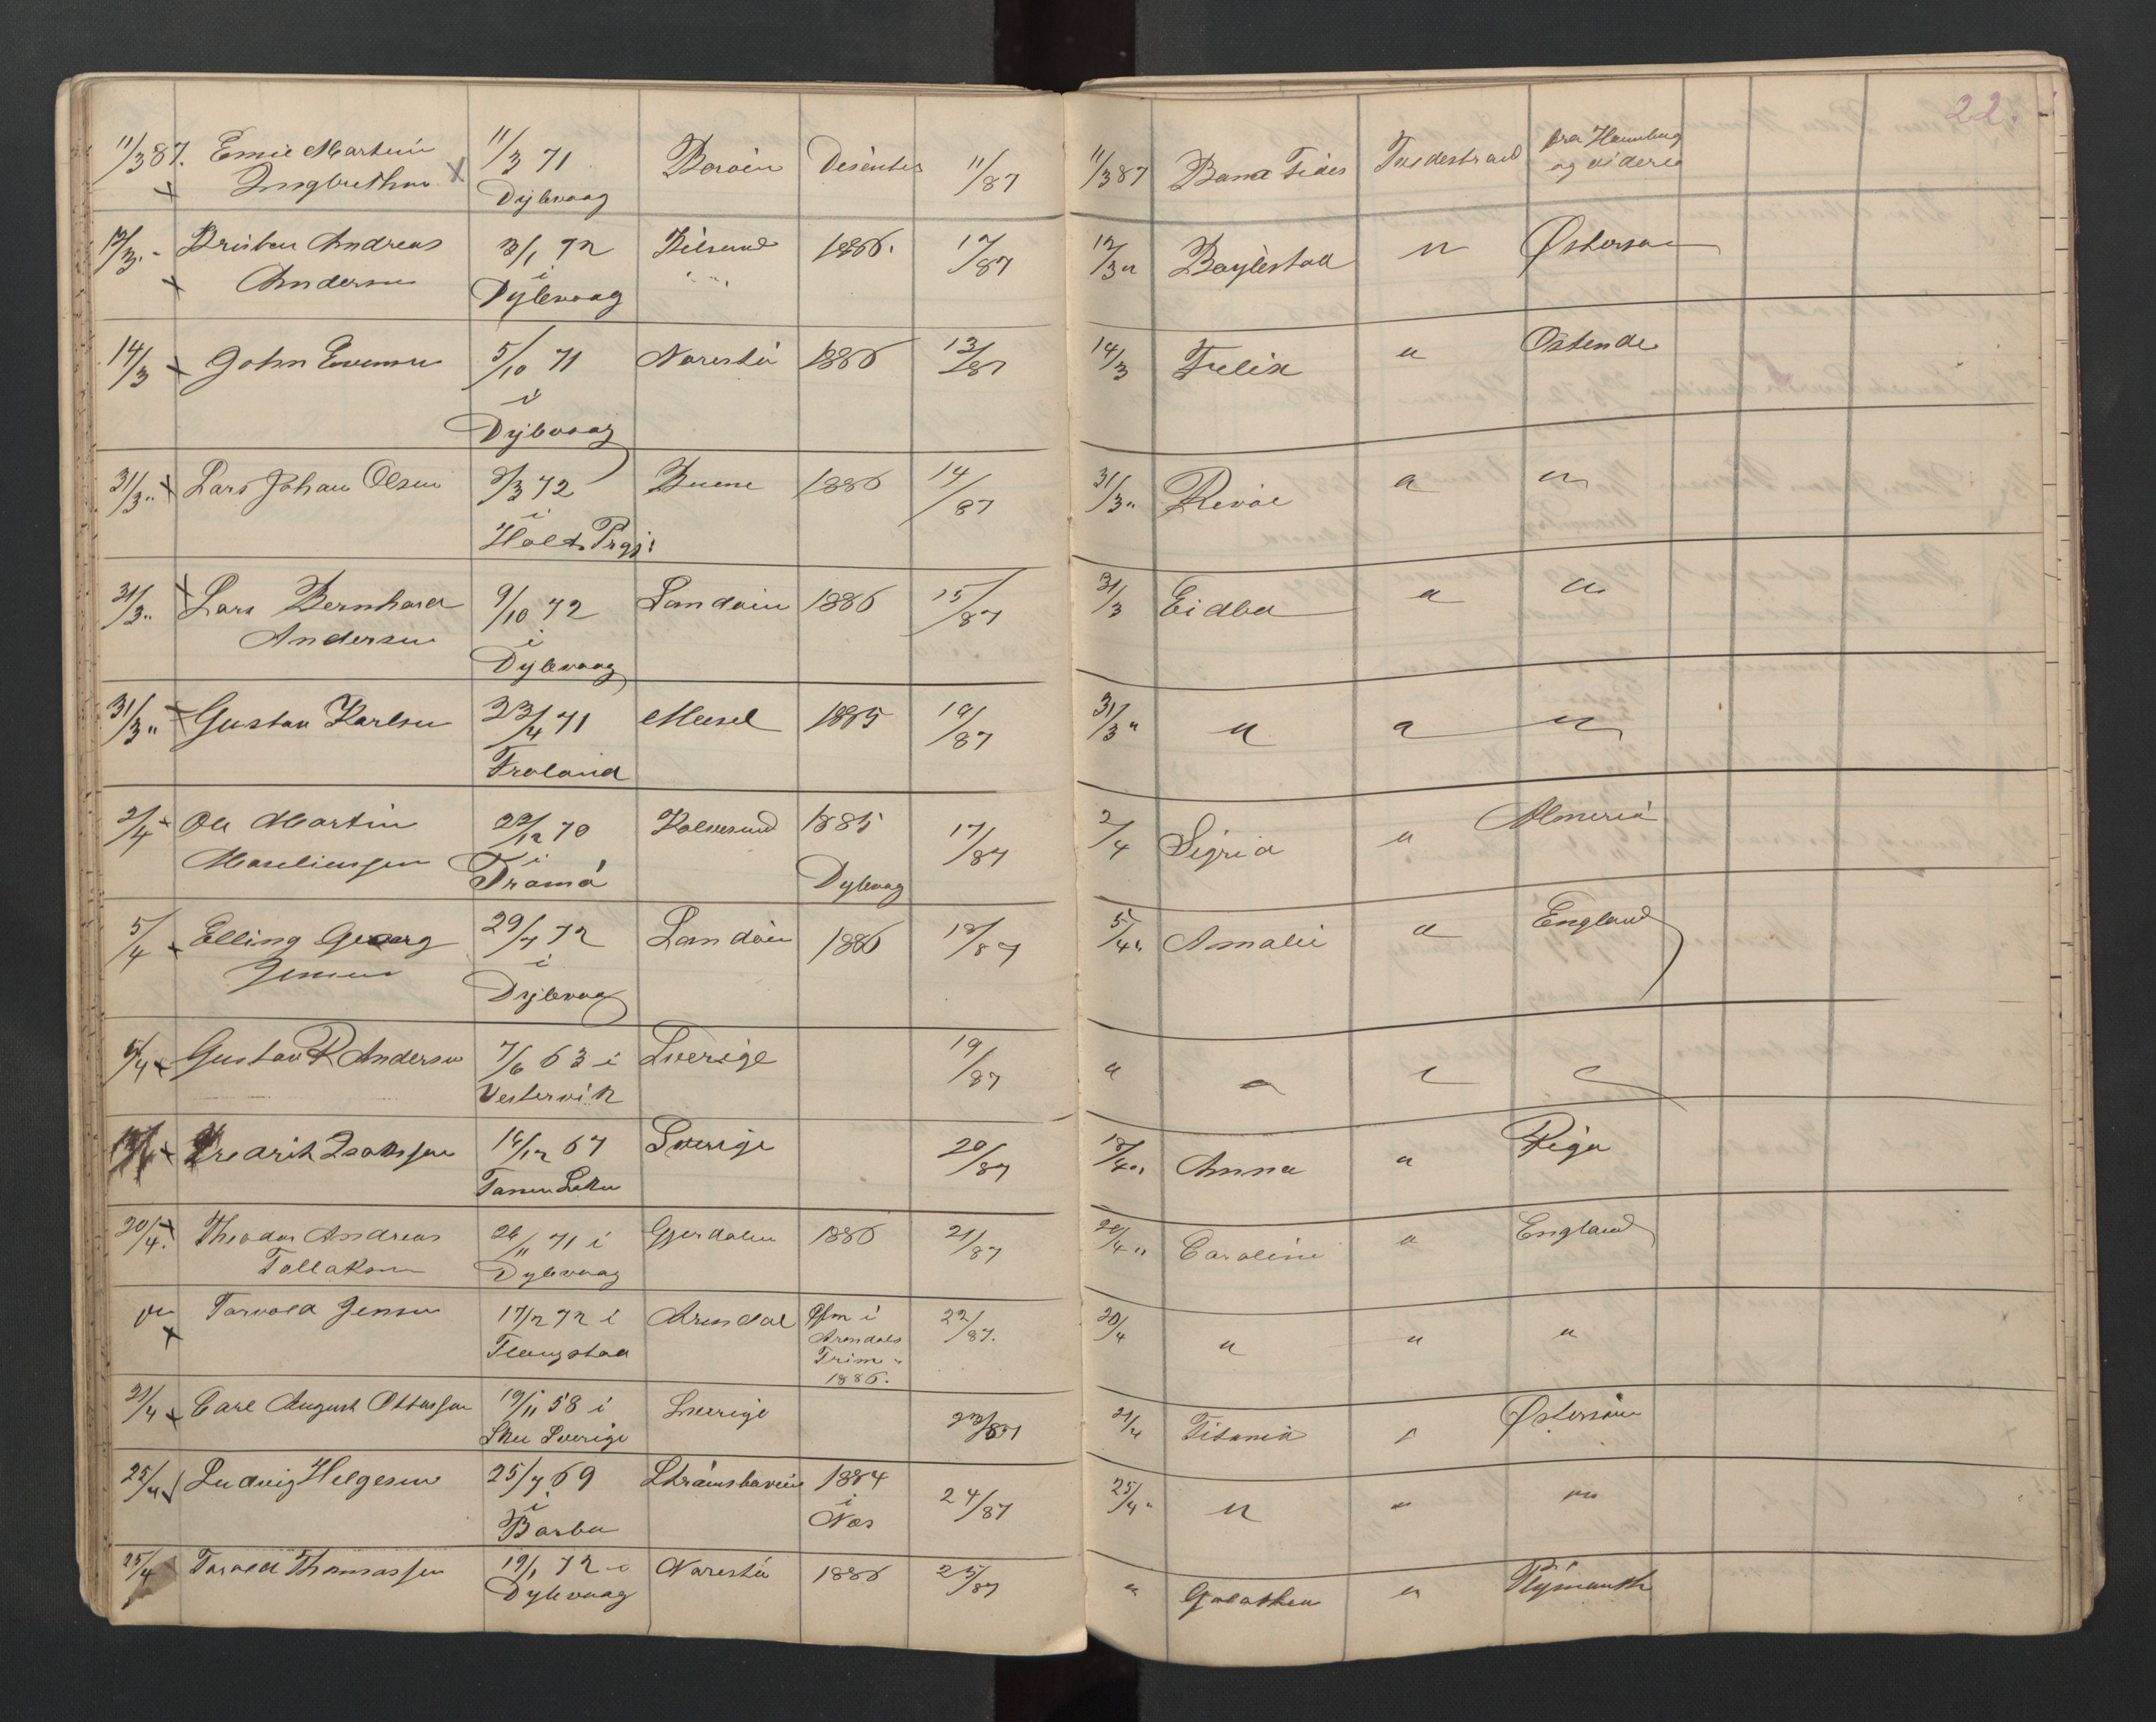 22.
11/3 87. Emil Martin 11/3 71 Borøen 11/87 11/3 87 Bona Fides Tvedestrand fra Hamburg
Ingbrethsen Dybvaag og videre
12/3 - Kristen Andreas 3/1 72 Kilsund 1886. 12/87 12/3 " Bøylestad " Østersøen
Andersen i
Dybvaag
14/3 John Evensen 5/10 71 Narestø 1886 13/87 14/3 Felix " Ostende
i
Dybvaag
31/3 " Lars Johan Olsen 3/3 72 1886 14/87 31/3 " " "
i
Holt Prgj:
31/3 " Lars Bernhard 9/10 72 Sandøien 1886 15/87 31/3 Eidba " "
Andersen i
Dybvaag
31/3 " Gustav Karlsen 23/4 71 1885 31/3 " " " "
Froland
2/4 Ole Martin 22/12 70 Kalvesund 1885 17/87 2/4 Sigrid " Almeria
i
Tromø Dybvaag
5/4 Elling Georg 29/7 72 Sandøien 1886 18/87 5/4 " Amalie " England
Jensen i
Dybvaag
5/4 Gustav R Andersen 7/6 63 i Sverige 19/87 " " " "
Vestervik
Fredrik Isakssen 16/12 67 Sverige 20/87 18/4 " Anna " Riga
20/4. Theodor Andreas 26/11 71 i Gjerdalen 1886 21/87 20/4 " Caroline " England
Tallaksen Dybvaag
" Torvald Jensen 17/2 72 i Arendal i 22/87. 20/4 " " "
Flangstad Arendals
Trim
1886.
21/4 Carl August Ottessen 19/11 58 i Sverige 23/87 21/4 Titania " Østersøen
Sverige
25/4 Ludvig Helgesen 25/7 69 Strømsbuvien 1884 24/87 25/4 " " " "
i i
Barbu Nes
25/4 Torvald Thomassen 19/1 72 i Narestø 1886 25/87 " Galathea " Plymouth
Dybvaag